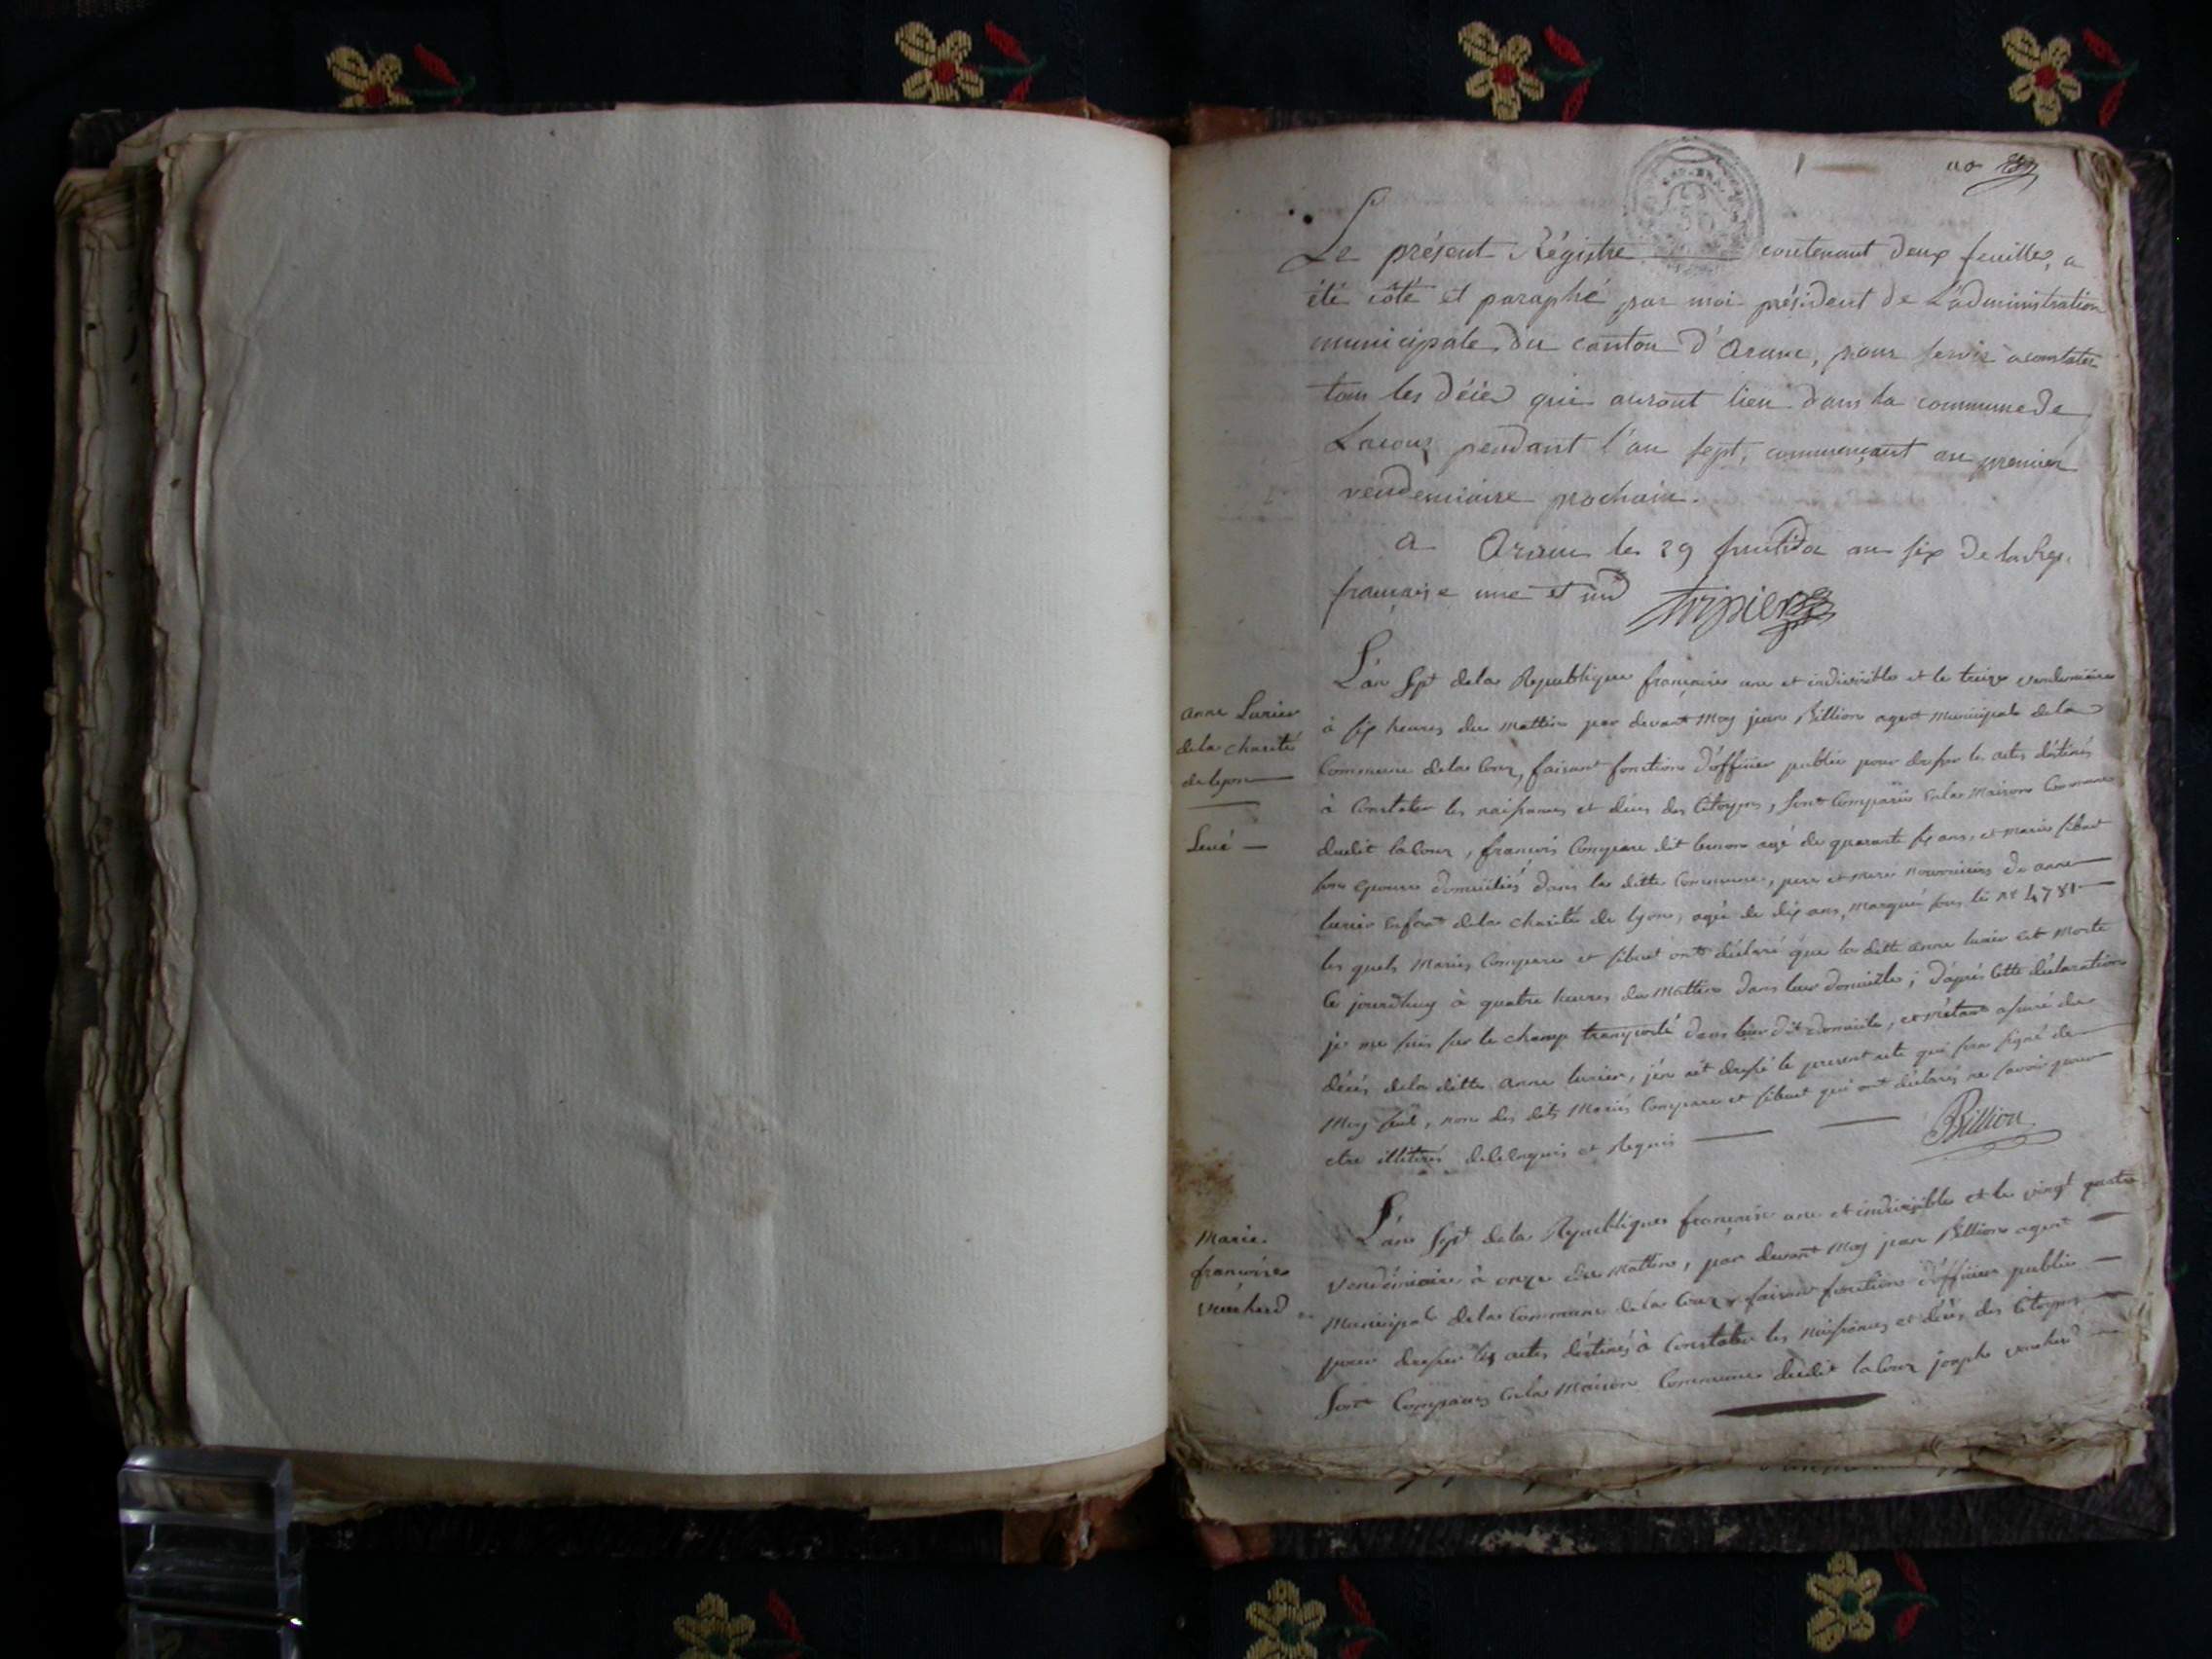 Le présent Régistre contenant deux feuilles, a
été côté et paraphé par moi président de L'administration
municipale du canton d'Aranc, pour servir a constater
tous les décès qui auront lieu dans la commune de
Lacoux pendant l'an sept, commençant au premier
vendemiaire prochain.
a Aranc le 29 fructidor an six de la Rep.
française une et ind
L'an Sept de la Republique francaise une et indivisible et le treize vendemiaire
à six heures du mattin par devant Moy jean Billion agent Municipal de la
Commune de la Coux, faisant fonction d'officier public pour dresser les actes déstinés
à Constater les naissances et décès des Citoyens, sont Comparus en la Maison Commune
dudit la Coux, francois Compare dit agé de quarante six ans, et Marie sibuet
son epouse domiciliés dans la ditte Commune, pere et mere nourriciers de anne
lurier enfant de la charité de lyon, agée de dix ans, Marqué sous le no 4781
les quels Mariés Compare et sibuet ont déclaré que la ditte anne lurier est Morte
Ce jourdhuy à quatre heures du Mattin dans leur domicille; d'aprés Cette déclaration
je me suis sur le champ transporté dans leur dit domicile, et m'étant assuré du
décès de la ditte anne lurier, j'en ait dressé le present acte qui sera signé de
Moy seul, non des dits Mariés Compare et sibuet qui ont déclarés ne savoir pour
etre illitérés de Ce Enquis et Requis
Billion
anne Lurier
de la charité
de lyon
Levé
L'an Sept de la Republique francaise une et indivisible et le vingt quatre
Vendémiaire à onze du mattin, par devant Moy jean Billion agent
Municipal de la Commune de la Coux faisant fonction d'officier public
pour dresser les actes déstinés à Constater les naissances et décès des Citoyens
Sont Comparus en la Maison Commune dudit la Coux joseph vuacherd
Marie
francoise
vuacherd